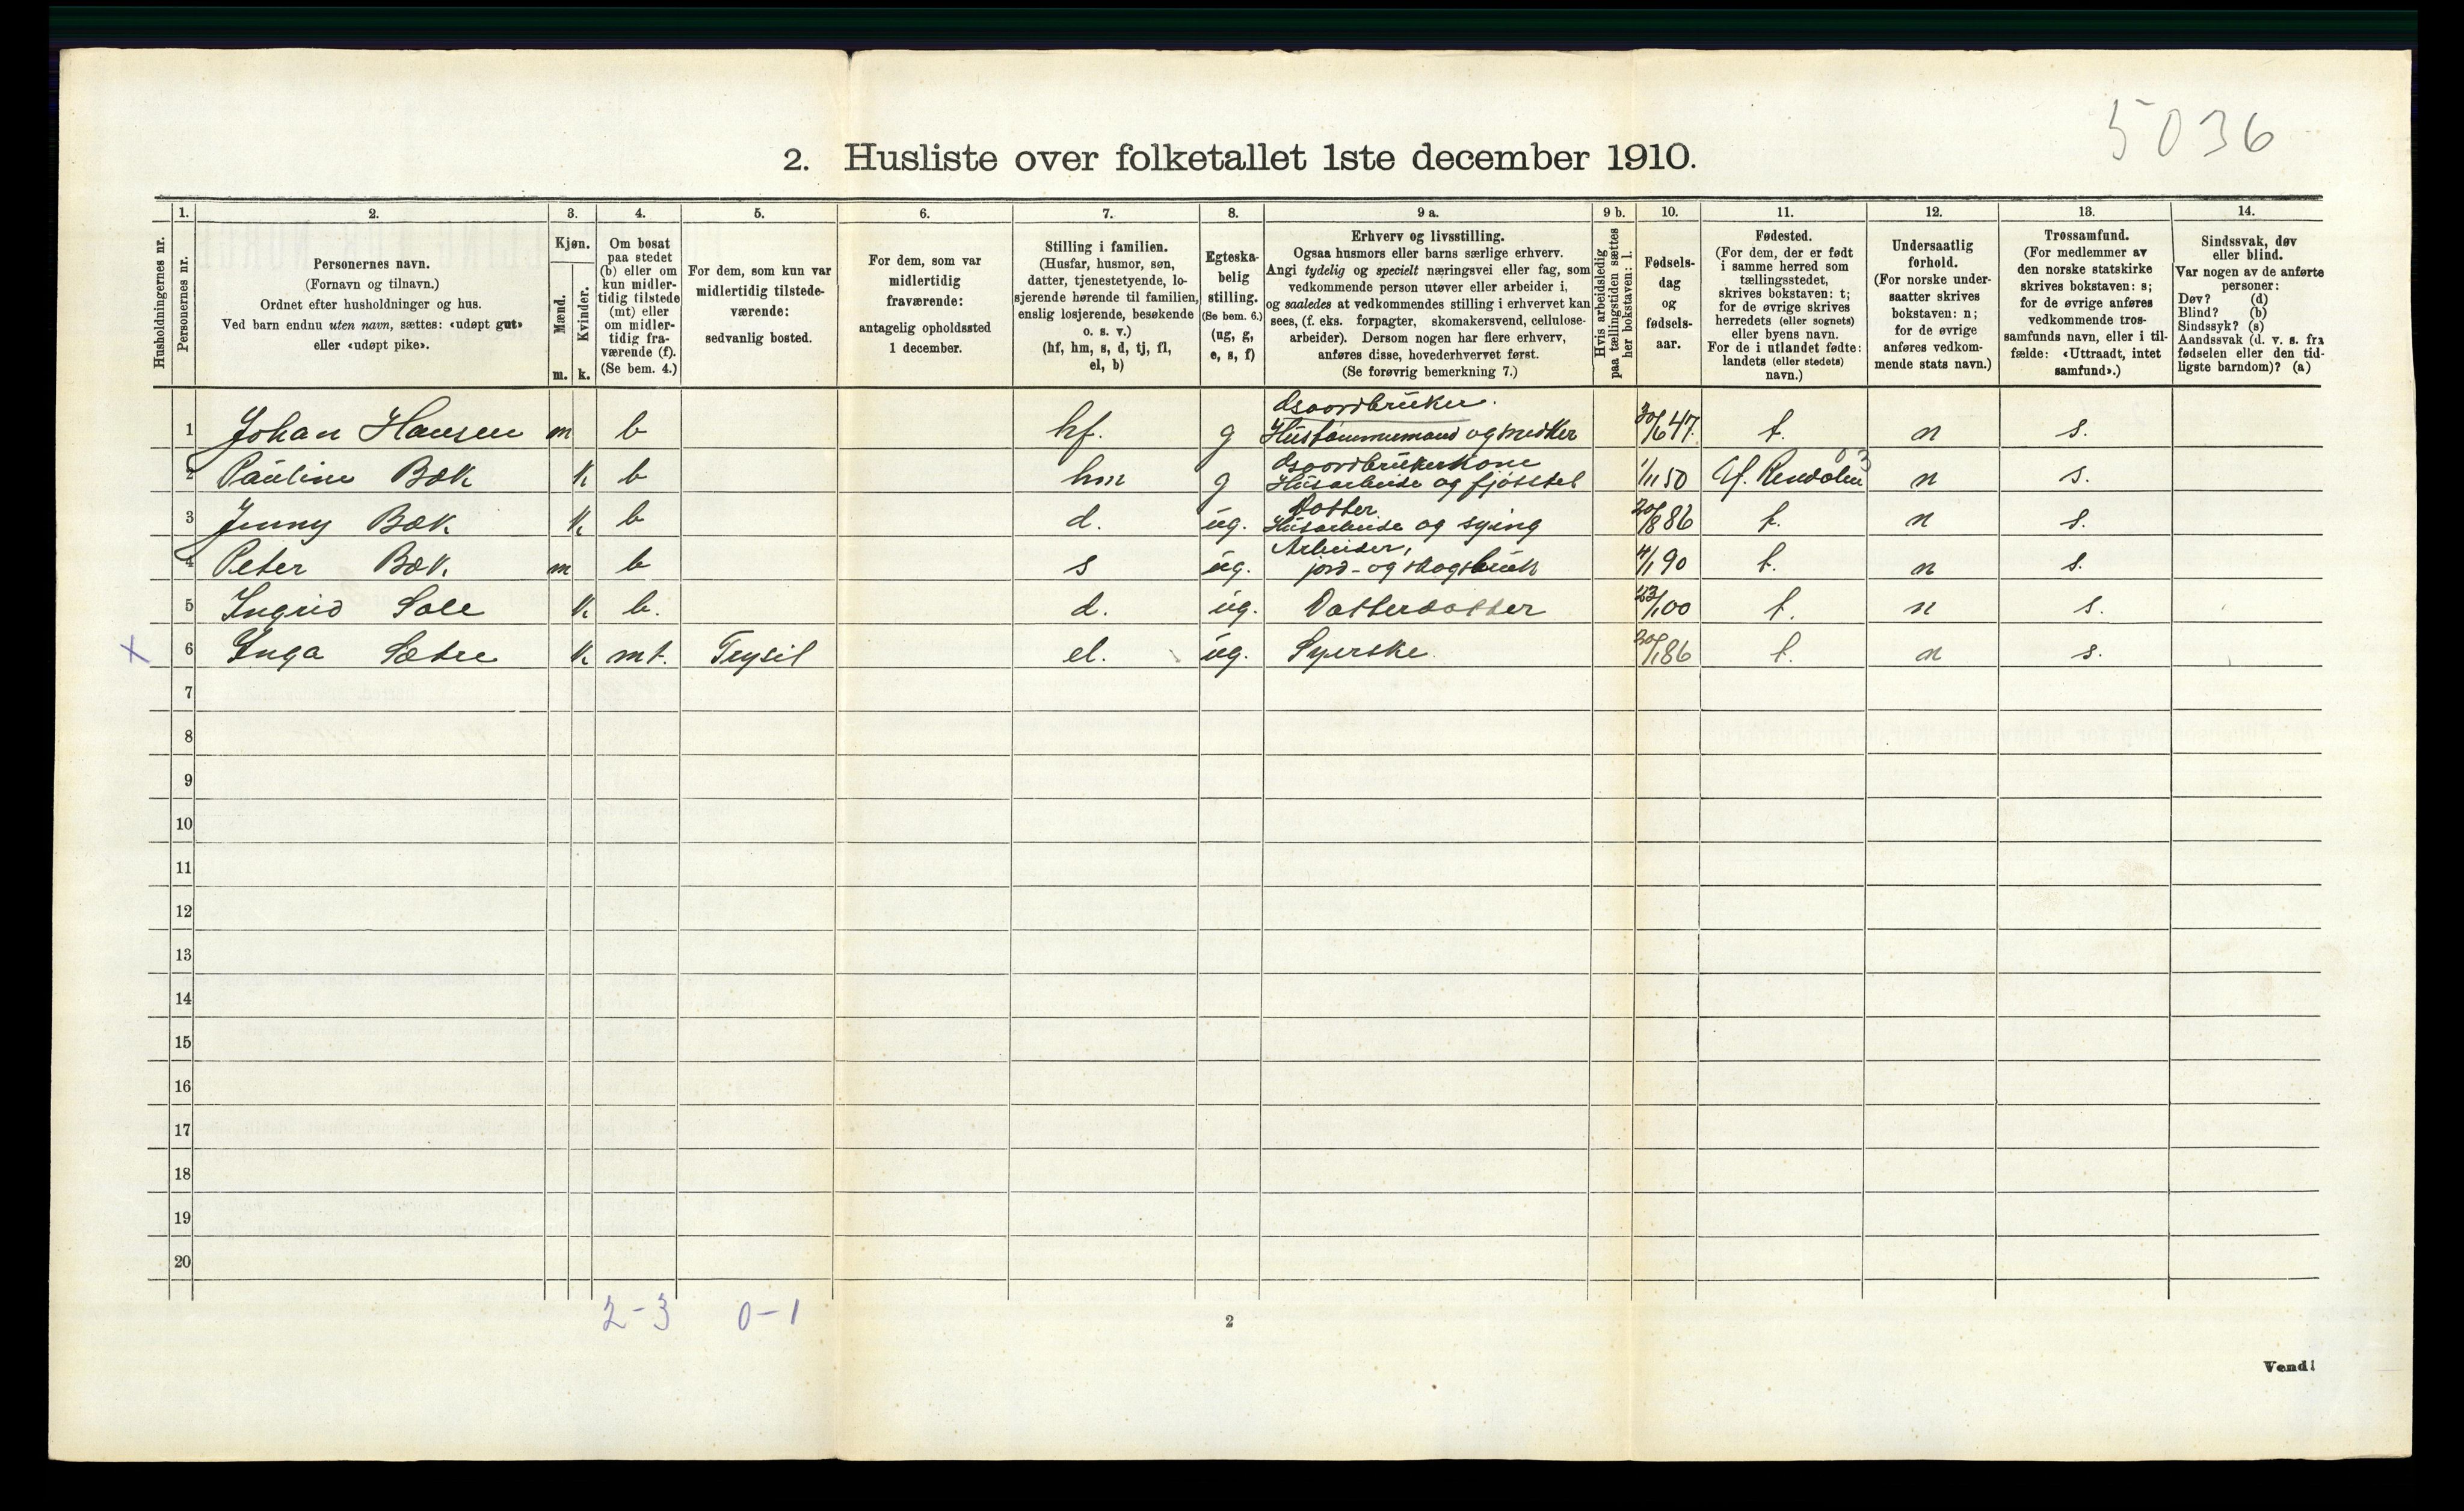 5036
2. Husliste over folketallet 1ste december 1910.
Husholdningernes nr.
1.
Personernes nr.
2.
Personernes navn.
(Fornavn og tilnavn.)
Ordnet efter husholdninger og hus.
Ved barn endnu uten navn, sættes: «udøpt gut»
eller «udøpt pike».
3.
Kjøn.
Mænd.
Kvinder.
m. k.
4.
Om bosat
paa stedet
(b) eller om
kun midler-
tidig tilstede
(mt) eller
om midler-
tidig fra-
værende (f).
(Se bem. 4.)
5.
For dem, som kun var
midlertidig tilstede-
værende:
sedvanlig bosted.
6.
For dem, som var
midlertidig
fraværende:
antagelig opholdssted
1 december.
7.
Stilling i familien.
(Husfar, husmor, søn,
datter, tjenestetyende, lo-
sjerende hørende til familien,
enslig losjerende, besøkende
o. s. v.)
(hf, hm, s, d, tj, fl,
el, b)
8.
Egteska-
belig
stilling.
(Se bem. 6.)
(ug, g,
e, s, f)
9 a.
Erhverv og livsstilling.
Ogsaa husmors eller barns særlige erhverv.
Angi tydelig og specielt næringsvei eller fag, som
vedkommende person utøver eller arbeider i,
og saaledes at vedkommendes stilling i erhvervet kan
sees, (f. eks. forpagter, skomakersvend, cellulose-
arbeider). Dersom nogen har flere erhverv,
anføres disse, hovederhvervet først.
(Se forøvrig bemerkning 7.)
9 b.
Hvis arbeidsledig
paa tællingstiden sættes
her bokstaven: l.
10.
Fødsels-
dag
og
fødsels-
aar.
11.
Fødested.
(For dem, der er født
i samme herred som
tællingsstedet,
skrives bokstaven: t;
for de øvrige skrives
herredets (eller sognets)
eller byens navn.
For de i utlandet fødte:
landets (eller stedets)
navn.)
12.
Undersaatlig
forhold.
(For norske under-
saatter skrives
bokstaven: n;
for de øvrige
anføres vedkom-
mende stats navn.)
13.
Trossamfund.
(For medlemmer av
den norske statskirke
skrives bokstaven: s;
for de øvrige anføres
vedkommende tros-
samfunds navn, eller i til-
fælde: «Uttraadt, intet
samfund».)
14.
Sindssvak, døv
eller blind.
Var nogen av de anførte
personer:
Døv? (d)
Blind? (b)
Sindssyk? (s)
Aandssvak (d. v. s. fra
fødselen eller den tid-
ligste barndom)? (a)
1 Johan Hansen m b hf. g Gaardbruker. Hustømmermand og snedker 30/6 47. t. n s.
2 Pauline Bæk k b hm g Gaardbrukerkone Husarbeide og fjøsstel 1/11 50 Y. Rendalen 3 n s.
3 Jenny Bæk k b d. ug. Datter Husarbeide og sying 20/8 86 t. n s.
4 Peter Bæk m b s ug. Arbeider, jord- og skogsbruk 4/1 90 t. n s.
5 Ingrid k b. d. ug. Datterdatter 23/1 00 t. n s.
x 6 Inga Sætre k mt. Trysil el. ug. Syerske. 30/1 86 t. n s.
7
8
9
10
11
12
13
14
15
16
17
18
19
20
2-3 0-1
2
Vend!